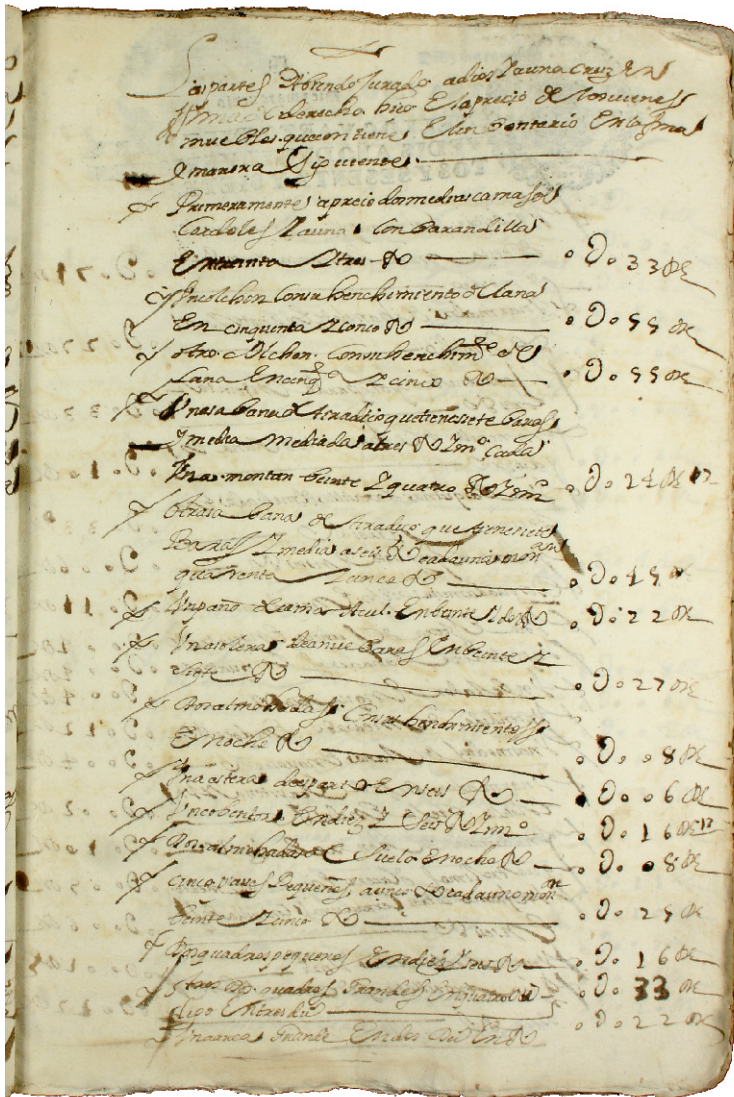 Las partes Abiendo Jurado adios Y auna cruz En
forma de derecho hiço El apreçio de los vienes
muebles que contiene El inbentario En la forma
Y manera Siguiente
Primeramente apreçio dos medias camas de
Cordeles Y auna Con barandillas
En treinta Y tres R 33 R
Un colchon Con su henchimiento de lana
En cinquenta Y cinco R 55 R
otro Colchon Con su henchimº de
Lana En cinqta Y cinco R 55 R
Una sabana de tiradiço que tiene siete baras
Y media mediada a tres R Y mº Cada
Una montan beinte Y quatro R Y mº 24 R 17
Otra sabana de tiradiço que tiene siete
Baras Y media a seis R cada una montan
quarenta Y cinco R 45
Un paño de cama Açul En beinte Y dos R 22 R
Una de nueve baras En beinte Y
siete R 27 R
Dos almohadas Con su henchimiento
En ocho R 8 R
Una estera de esparto En seis R 6 R
En diez Y Seis R Y mº 16 R 17
Dos almohadas de Suelo En ocho R 8 R
Cinco Pequeños a cinco R cada uno montan
beinte Y cinco R 25 R
Dos quadros pequeños En diez Y seis R 16 R
quadros Grandes En quatro
En tres du 33 R
Un arca Grande En dos Du En R 22 R